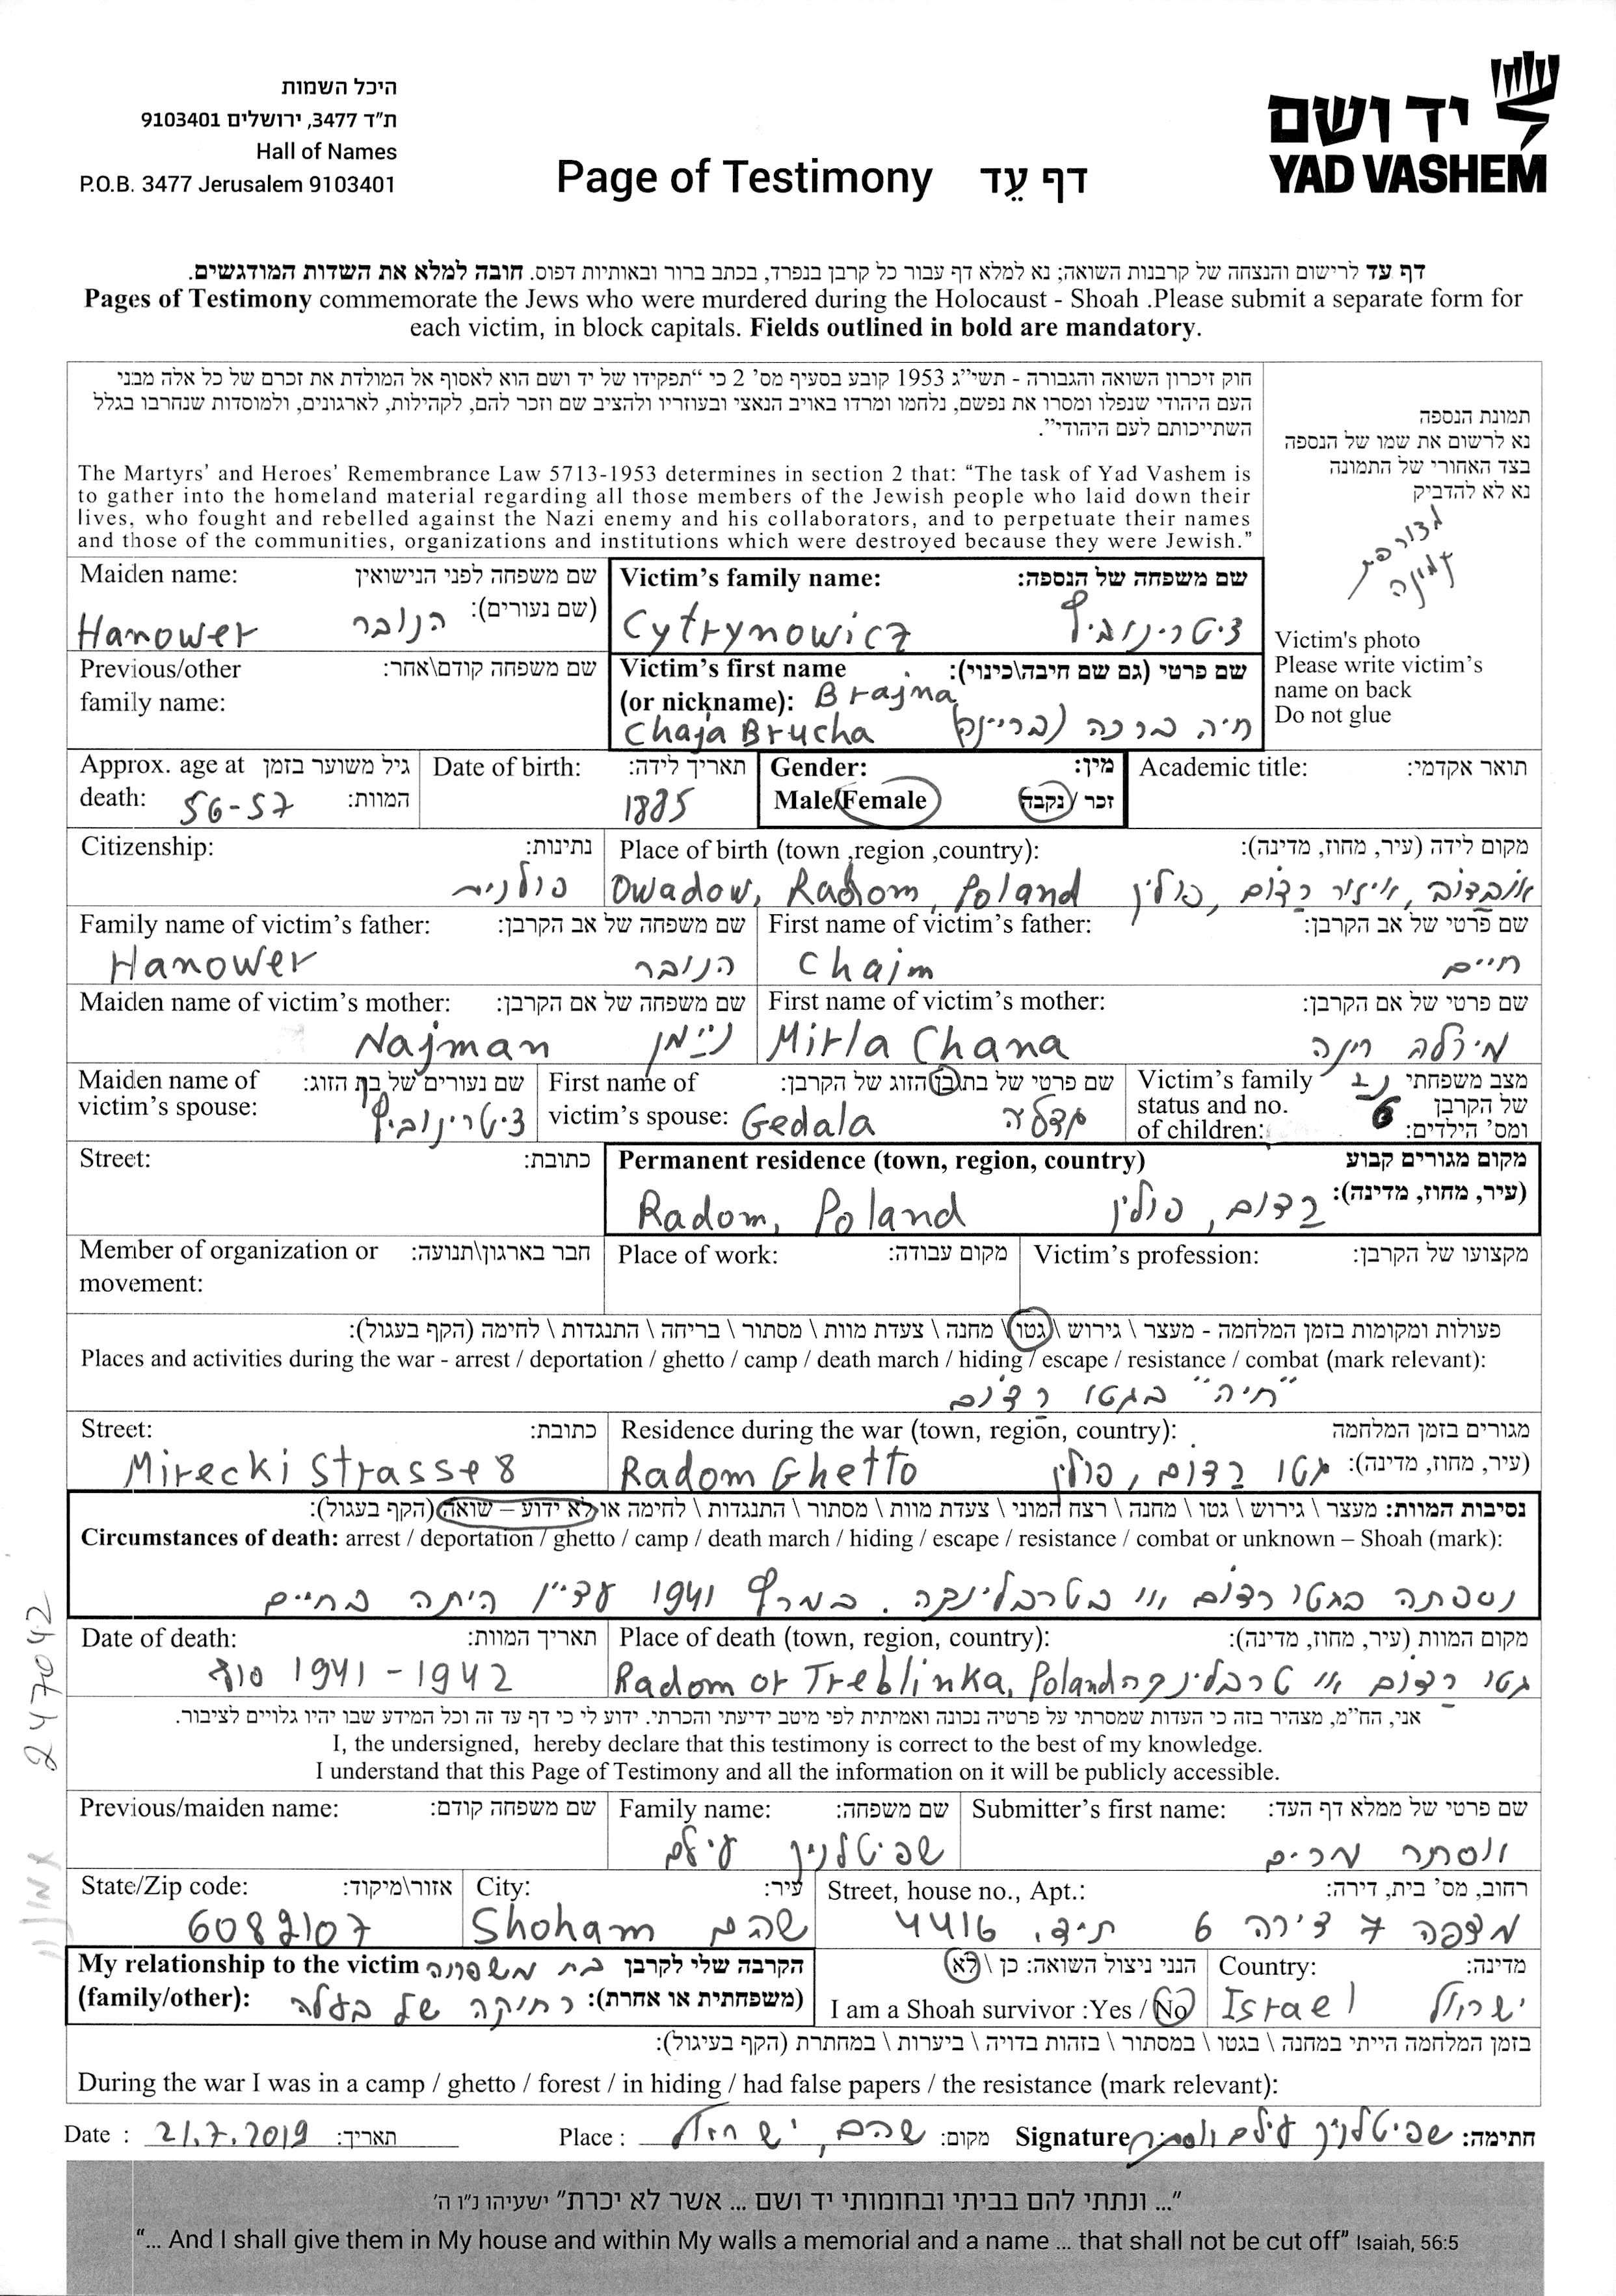 היכל השמות
ת"ד 3477, ירושלים 9103401
Hall of Names
P.O.B. 3477 Jerusalem 9103401
Page of Testimony דף עֵד
יד ושם
YAD VASHEM
דף עד לרישום והנצחה של קרבנות השואה; נא למלא דף עבור כל קרבן בנפרד, בכתב ברור ובאותיות דפוס. חובה למלא את השדות המודגשים.
Pages of Testimony commemorate the Jews who were murdered during the Holocaust - Shoah .Please submit a separate form for
each victim, in block capitals. Fields outlined in bold are mandatory.
חוק זיכרון השואה והגבורה - תשי"ג 1953 קובע בסעיף מס' 2 כי "תפקידו של יד ושם הוא לאסוף אל המולדת את זכרם של כל אלה מבני
העם היהודי שנפלו ומסרו את נפשם, נלחמו ומרדו באויב הנאצי ובעוזריו ולהציב שם וזכר להם, לקהילות, לארגונים, ולמוסדות שנחרבו בגלל
השתייכותם לעם היהודי".
The Martyrs' and Heroes' Remembrance Law 5713-1953 determines in section 2 that: "The task of Yad Vashem is
to gather into the homeland material regarding all those members of the Jewish people who laid down their
lives, who fought and rebelled against the Nazi enemy and his collaborators, and to perpetuate their names
and those of the communities, organizations and institutions which were destroyed because they were Jewish."
תמונת הנספה
נא לרשום את שמו של הנספה
בצד האחורי של התמונה
נא לא להדביק
מצורפת
תמונה
Victim's photo
Please write victim's
name on back
Do not glue
Maiden name: שם משפחה לפני הנישואין
(שם נעורים):
Hanower הנובר
Victim's family name: שם משפחה של הנספה:
Cytrynowicz ציטרינוביץ
Previous/other שם משפחה קודם\אחר:
family name:
Victim's first name שם פרטי (גם שם חיבה\כינוי):
(or nickname): Brajna
Chaja Brucha חיה ברכה (בריינה)
Approx. age at גיל משוער בזמן
death: 56-57 המוות:
Date of birth: תאריך לידה:
1885
Gender: מין:
Male/Female זכר / נקבה
Academic title: תואר אקדמי:
Citizenship: נתינות:
פולנית
Place of birth (town ,region ,country): מקום לידה (עיר, מחוז, מדינה):
Owadow, Radom, Poland אובדוב, איזור רדום, פולין
Family name of victim's father: שם משפחה של אב הקרבן:
Hanower הנובר
First name of victim's father: שם פרטי של אב הקרבן:
Chaim חיים
Maiden name of victim's mother: שם משפחה של אם הקרבן:
Najman ניימן
First name of victim's mother: שם פרטי של אם הקרבן:
Mirla Chana מירלה חנה
Maiden name of שם נעורים של בת הזוג:
victim's spouse: ציטרינוביץ
First name of שם פרטי של בת\בן הזוג של הקרבן:
victim's spouse: Gedala גדלה
Victim's family מצב משפחתי נ - 2
status and no. של הקרבן 6
of children: ומס' הילדים:
Street: כתובת:
Permanent residence (town, region, country) מקום מגורים קבוע
(עיר, מחוז, מדינה):
Radom, Poland רדום, פולין
Member of organization or חבר בארגון\תנועה:
movement:
Place of work: מקום עבודה:
Victim's profession: מקצועו של הקרבן:
פעולות ומקומות בזמן המלחמה - מעצר \ גירוש \ גטו \ מחנה \ צעדת מוות \ מסתור \ בריחה \ התנגדות \ לחימה (הקף בעגול):
Places and activities during the war - arrest / deportation / ghetto / camp / death march / hiding / escape / resistance / combat (mark relevant):
"חיה" בגטו רדום
Street: כתובת:
Mirecki Strasse 8
Residence during the war (town, region, country): מגורים בזמן המלחמה
(עיר, מחוז, מדינה):
Radom Ghetto גטו רדום, פולין
נסיבות המוות: מעצר \ גירוש \ גטו \ מחנה \ רצח המוני \ צעדת מוות \ מסתור \ התנגדות \ לחימה או לא ידוע – שואה (הקף בעגול):
Circumstances of death: arrest / deportation / ghetto / camp / death march / hiding / escape / resistance / combat or unknown – Shoah (mark):
נספתה בגטו רדום או בטרבלינקה. במרץ 1941 עדיין היתה בחיים
Date of death: תאריך המוות:
סוף 1941 - 1942
Place of death (town, region, country): מקום המוות (עיר, מחוז, מדינה):
Radom or Treblinka, Poland גטו רדום או טרבלינקה
אני, הח"מ, מצהיר בזה כי העדות שמסרתי על פרטיה נכונה ואמיתית לפי מיטב ידיעתי והכרתי. ידוע לי כי דף עד זה וכל המידע שבו יהיו גלויים לציבור.
I, the undersigned, hereby declare that this testimony is correct to the best of my knowledge.
I understand that this Page of Testimony and all the information on it will be publicly accessible.
Previous/maiden name: שם משפחה קודם:
Family name: שם משפחה:
שפיטלניק עילם
Submitter's first name: שם פרטי של ממלא דף העד:
ואסתר מרים
State/Zip code: אזור\מיקוד:
6082107
City: עיר:
Shoham שהם
Street, house no., Apt.: רחוב, מס' בית, דירה:
מצפה 7 דירה 6 ת.ד. 4416
My relationship to the victim הקרבה שלי לקרבן בת משפחה
(family/other): (משפחתית או אחרת): רחוקה של בעלה
הנני ניצול השואה: כן \ לא
I am a Shoah survivor :Yes / No
Country: מדינה:
Israel ישראל
בזמן המלחמה הייתי במחנה \ בגטו \ במסתור \ בזהות בדויה \ ביערות \ במחתרת (הקף בעיגול):
During the war I was in a camp / ghetto / forest / in hiding / had false papers / the resistance (mark relevant):
Date : 21.7.2019 תאריך:
Place : שהם, ישראל מקום:
Signature שפיטלניק עילם חתימה:
247042
"... ונתתי להם בביתי ובחומותי יד ושם ... אשר לא יכרת" ישעיהו נ"ו ה'
"... And I shall give them in My house and within My walls a memorial and a name ... that shall not be cut off" Isaiah, 56:5